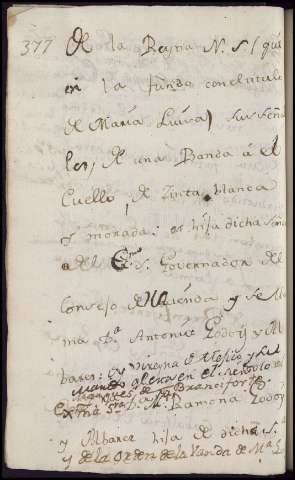 377 de la Reyna N. S. (que
en la fundo con el titulo
de Maria Luisa) sus señа
les, de una Banda á el
Cuello, de Zinta blanca
y morada: es hija dicha Seña
del Exmo. S. Governador del
Consejo de Hazienda y se lla
ma Dª Antonia Godoy y Al
barez: ex Vireyna de Mejico
quando gloria en el
Marques de Branciforte
Exmа Srª Dª Mª Ramona Godoy
y Albarez hija de dicho S.
y de la orden de la Vanda de Mª L